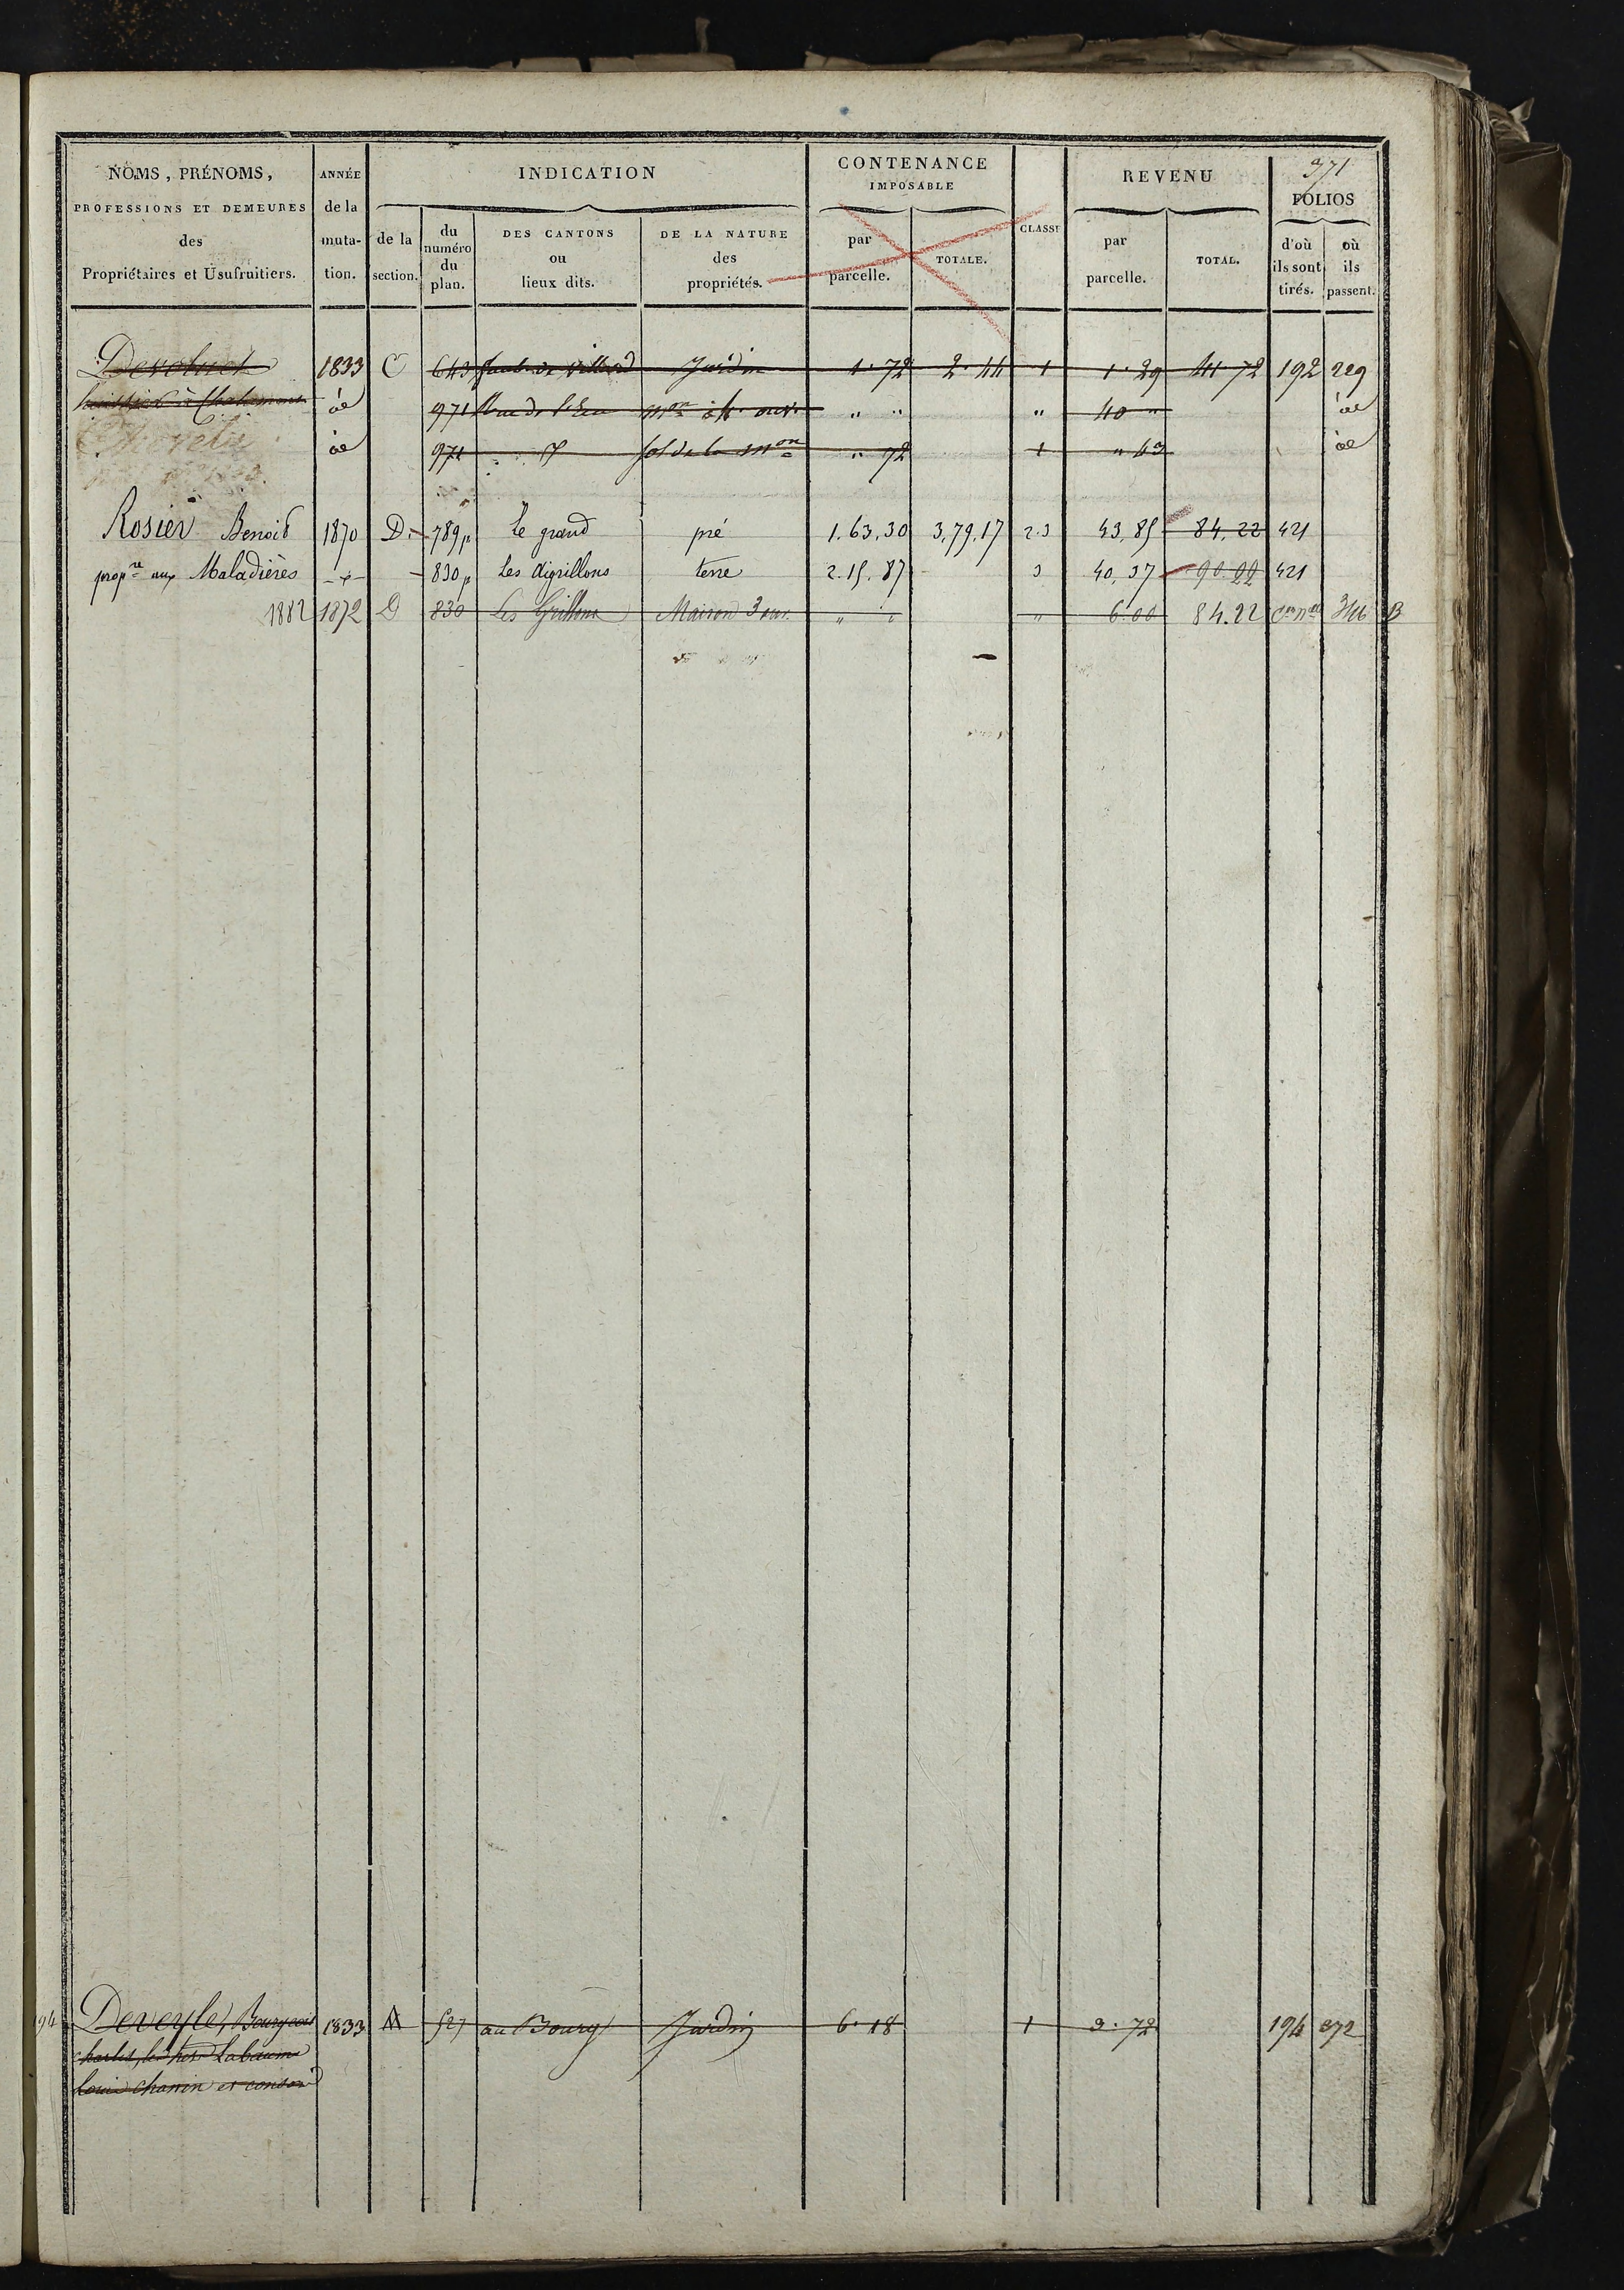 371
NOMS, PRÉNOMS, PROFESSIONS ET DEMEURES des Propriétaires et Usufruitiers.
ANNÉE de la muta-tion.
INDICATION
de la section.
du numéro du plan.
DES CANTONS ou lieux dits.
DE LA NATURE des propriétés.
CONTENANCE IMPOSABLE
par parcelle.
TOTALE.
CLASSE
REVENU
par parcelle.
TOTAL.
FOLIOS
d'où ils sont tirés.
où ils passent.
Devoluet 1833 C 643 Jardin 1.72 2.44 1 1.29 41 72 192 229
huissier à 971 Rue de l' mon " " " 40 "
971 sol de la mon " 72 1 " 43
Rosier Benoit 1870 D. 789p le grand pré 1.63.30 3.79.17 2.3 43.85 84.22 421
propre aux Maladières 830p Les aigrillons terre 2.15.87 3 40.37 90.22 421
1882 1872 D 830 Les Grillons Maison 3 ouv. " " " 6.00 84.22 B
194 Deveyle, Bourgeois 1833 A 527 au Bourg Jardin 6.18 1 3.72 194 372
charles, Labaume
Louis chanin et